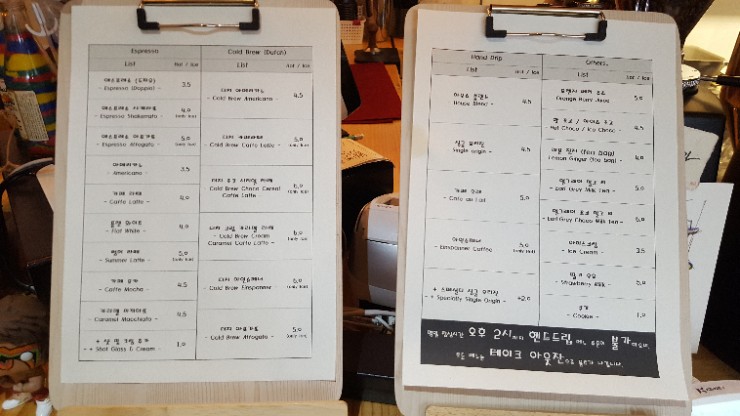 Espresso
List
Hot / Ice
에스프레소 (도피오)
- Espresso (Doppio) -
3.5
에스프레소 샤케라또
- Espresso Shakerato -
4.0
에스프레소 아포가토
- Espresso Affogato -
5.0
아메리카노
- Americano -
3.5
카페 라떼
- Caffe Latte -
4.0
플랫 화이트
- Flat White -
4.0
썸머 라떼
- Summer Latte -
5.0
카페 모카
- Caffe Mocha -
4.5
카라멜 마끼아또
- Caramel Macchiato -
4.5
- + Shot Glass & Cream -
1.0
Cold Brew (Dutch)
List
Hot / Ice
더치 아메리카노
- Cold Brew Americano -
4.5
더치 카페라떼
- Cold Brew Caffe Latte -
5.0
Cold Brew Choco Cereal
Caffe Latte
6.0
더치 크림 카라멜 라떼
- Cold Brew Cream
Caramel Caffe Latte -
6.0
더치 아인슈페너
- Cold Brew Einspanner -
5.0
더치 아포가토
- Cold Brew Affogato -
5.0
Hand Drip
List
Hot / Ice
하우스 블렌드
- House Blend -
4.5
싱글 오리진
- Single Origin -
4.5
카페 오레
- Cafe au Lait -
5.0
아인슈페너
- Einspanner Coffee -
5.0
+ 스페셜티 싱글 오리진
- + Specialty Single Origin -
+2.0
Others.
List
Hot / Ice
오렌지 허니 주스
Orange Honey Juice
5.0
핫 초코 / 아이스 초코
- Hot Choco / Ice Choco -
4.5
레몬 진저 (Tea bag)
- Lemon Ginger (Tea bag) -
4.0
얼그레이 밀크 티
- Earl Grey Milk Tea -
5.0
얼그레이 초코 밀크 티
- Earl Grey Choco Milk Tea -
5.0
아이스크림
- Ice Cream -
3.5
딸기 우유
- Strawberry Milk -
5.0
쿠키
- Cookie -
1.0
평일 점심시간 오후 2시까지 핸드드립 메뉴 주문이 불가
모든 메뉴는 테이크 아웃잔으로